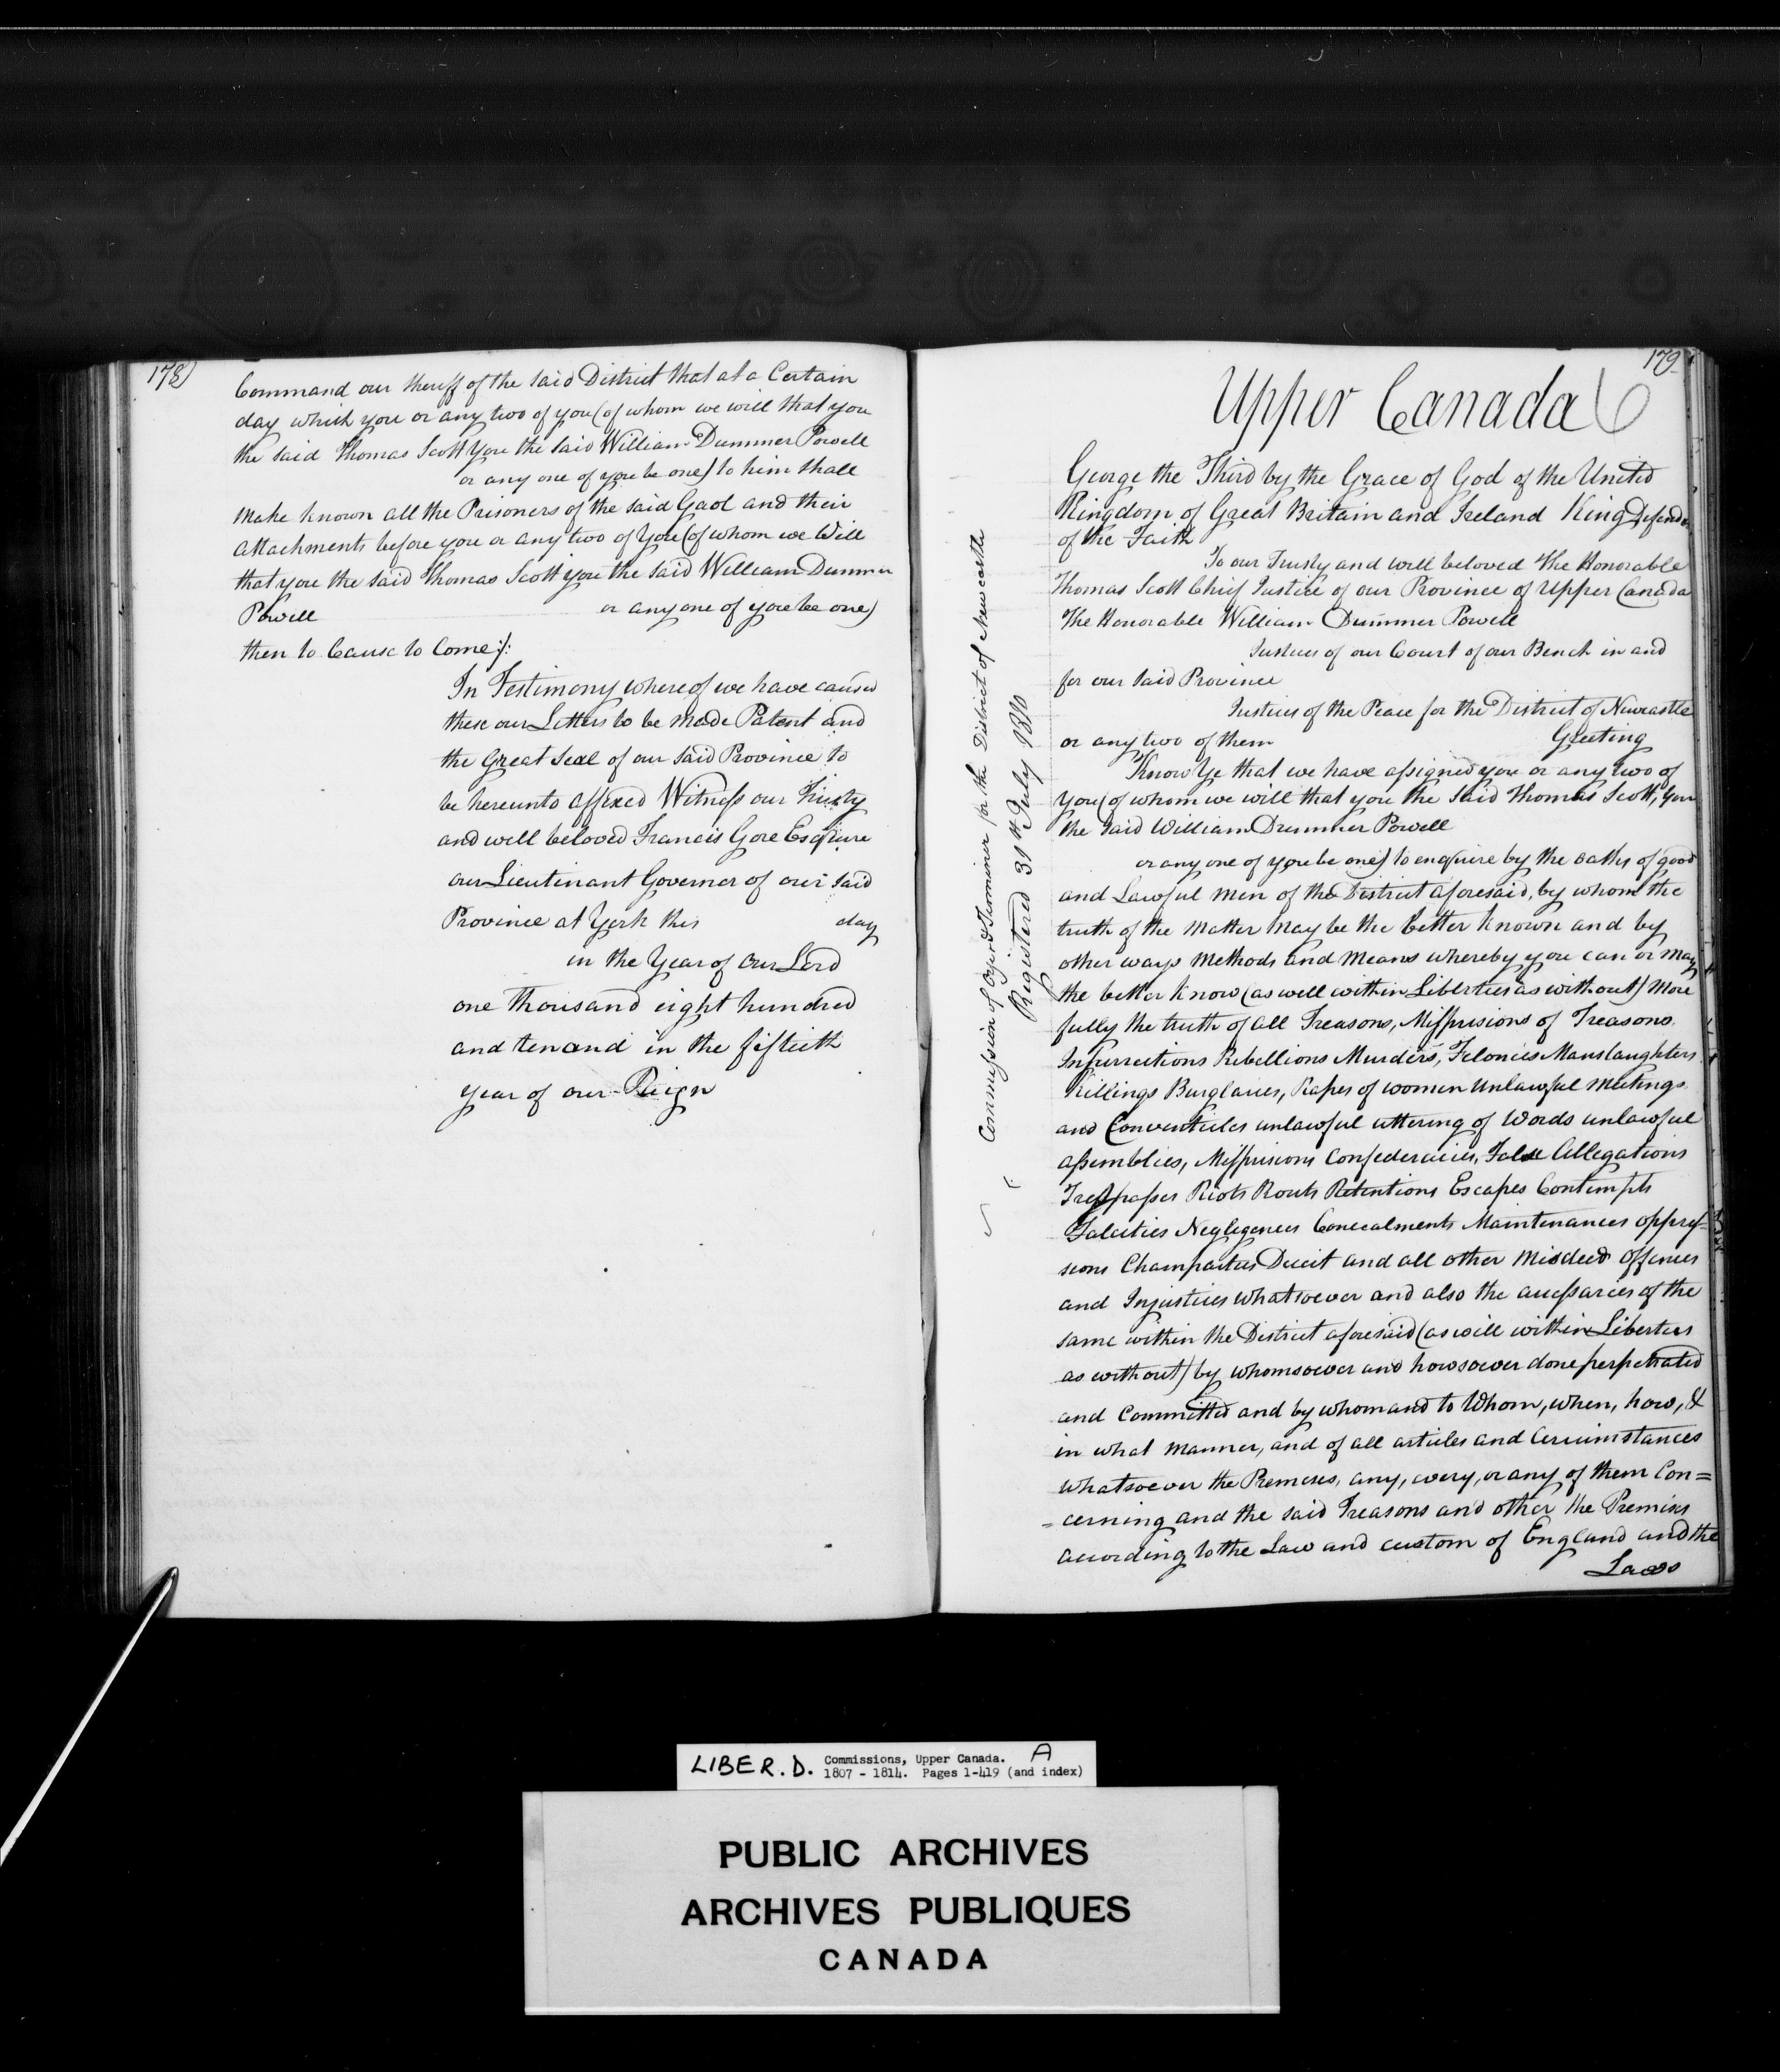 178)
Command our Sheriff of the said District that at a Certain
day which you or any two of you (of whom we will that you
the said Thomas Scott you the said William Dummer Powell
or any one of you be one) to him shall
Make known all the Prisoners of the said Gaol and their
Attachments before you or any two of You (of whom we Will
that you the said Thomas Scott you the said William Dummer
Powell or any one of you be one)
then to Cause to Come :/:
In Testimony whereof we have caused
these our Letters to be made Patent and
the Great Seal of our said Province to
be hereunto affixed Witness our Trusty
and well beloved Francis Gore Esquire
our Lieutenant Governor of our said
Province at York this day
in the Year of Our Lord
one thousand eight hundred
and ten and in the fiftieth
year of our Reign
179
Upper Canada
Commission of Oyer & Terminer for the District of Newcastle
Registered 31st July 1810
George the Third by the Grace of God of the United
Kingdom of Great Britain and Ireland King Defender
of the Faith
To our Trusty and well beloved The Honorable
Thomas Scott Chief Justice of our Province of Upper Canada
The Honorable William Dummer Powell
Justices of our Court of our Bench in and
for our said Province
Justices of the Peace for the District of Newcastle
or any two of them Greeting
Know Ye that we have assigned you or any two of
you (of whom we will that you the said Thomas Scott, you
the said William Drummer Powell
or any one of you be one) to enquire by the oaths of good
and Lawful men of the District aforesaid, by whom the
truth of the Matter may be the better known and by
other ways Methods and Means whereby you can or may
the better know (as well within Liberties as without) More
fully the truth of all Treasons, Misprisions of Treasons
Insurrections Rebellions Murders, Felonies Manslaughters
Killings Burglaries, Rapes of women Unlawful Meetings
and Conventicles unlawful uttering of Words unlawful
assemblies, Misprisions Confederacies, False Allegations
Trespasses Riots Routs Retentions Escapes Contempts
Falcities Negligences Concealments Maintenances oppres=
sions Champarties Deceit and all other Misdeeds Offences
and Injustices whatsoever and also the accessaries of the
same within the District aforesaid (as well within Liberties
as without) by whomsoever and howsoever done perpetrated
and Committed and by whom and to Whom, when, how, &
in what Manner, and of all articles and Circumstances
whatsoever the Premises, any, every, or any of them Con=
=cerning and the said Treasons and other the Premises
according to the Law and custom of England and the
Laws
LIBER. D. Commissions, Upper Canada. A
1807 - 1814. Pages 1-419 (and index)
PUBLIC ARCHIVES
ARCHIVES PUBLIQUES
CANADA